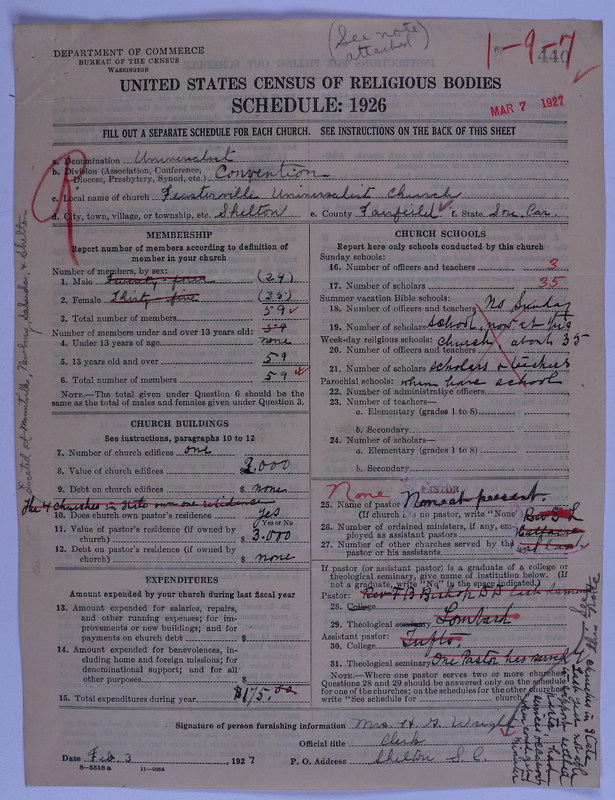 (See note attached)
1-9-7
440
DEPARTMENT OF COMMERCE
BUREAU OF THE CENSUS
WASHINGTON
UNITED STATES CENSUS OF RELIGIOUS BODIES
SCHEDULE: 1926
MAR 7 1927
FILL OUT A SEPARATE SCHEDULE FOR EACH CHURCH. SEE INSTRUCTIONS ON THE BACK OF THIS SHEET
a. Denomination Universalist
b. Division (Association, Conference, Diocese, Presbytery, Synod, etc.) Convention
c. Local name of church Feasterville Universalist Church
d. City, town, village, or township, etc. Shelton e. County Fairfield f. State So. Car.
MEMBERSHIP
Report number of members according to definition of member in your church
Number of members, by sex:
1. Male Twenty-four (24)
2. Female Thirty five (35)
3. Total number of members 59
Number of members under and over 13 years old: 59
4. Under 13 years of age none
5. 13 years old and over 59
6. Total number of members 59
NOTE.—The total given under Question 6 should be the same as the total of males and females given under Question 3.
CHURCH BUILDINGS
See instructions, paragraphs 10 to 12
7. Number of church edifices one
8. Value of church edifices $ 2,000
9. Debt on church edifices $ none
The 4 churches in State own one residence
10. Does church own pastor's residence yes
(Yes or No)
11. Value of pastor's residence (if owned by church) $ 3.000
12. Debt on pastor's residence (if owned by church) $ none
EXPENDITURES
Amount expended by your church during last fiscal year
13. Amount expended for salaries, repairs, and other running expenses; for improvements or new buildings; and for payments on church debt $
14. Amount expended for benevolences, including home and foreign missions; for denominational support; and for all other purposes. $
15. Total expenditures during year $175.00
CHURCH SCHOOLS
Report here only schools conducted by this church
Sunday schools:
16. Number of officers and teachers 3
17. Number of scholars 35
Summer vacation Bible schools:
18. Number of officers and teachers No Sunday
19. Number of scholars school, now at this
Week-day religious schools: church about 35
20. Number of officers and teachers
21. Number of scholars scholars & teachers
Parochial schools: when have school
22. Number of administrative officers
23. Number of teachers—
a. Elementary (grades 1 to 8)
b. Secondary
24. Number of scholars—
a. Elementary (grades 1 to 8)
b. Secondary
None PASTOR
25. Name of pastor None at present.
(If church has no pastor, write "None")
26. Number of ordained ministers, if any, employed as assistant pastors
27. Number of other churches served by the pastor or his assistants
If pastor (or assistant pastor) is a graduate of a college or theological seminary, give name of institution below. (If not a graduate, write "No" in the space indicated.)
Pastor: Rev F B Bishop D D
28. College
29. Theological seminary Lombard
Assistant pastor:
30. College Tufts.
31. Theological seminary One Pastor has served
NOTE.—Where one pastor serves two or more churches, Questions 28 and 29 should be answered only on the schedule for one of the churches; on the schedules for the other churches write "See schedule for church
Signature of person furnishing information Mrs. H. G. Wright
Official title Clerk
Date Feb. 3, 1927 P. O. Address Shelton S. C.
8—5518a 11—9054